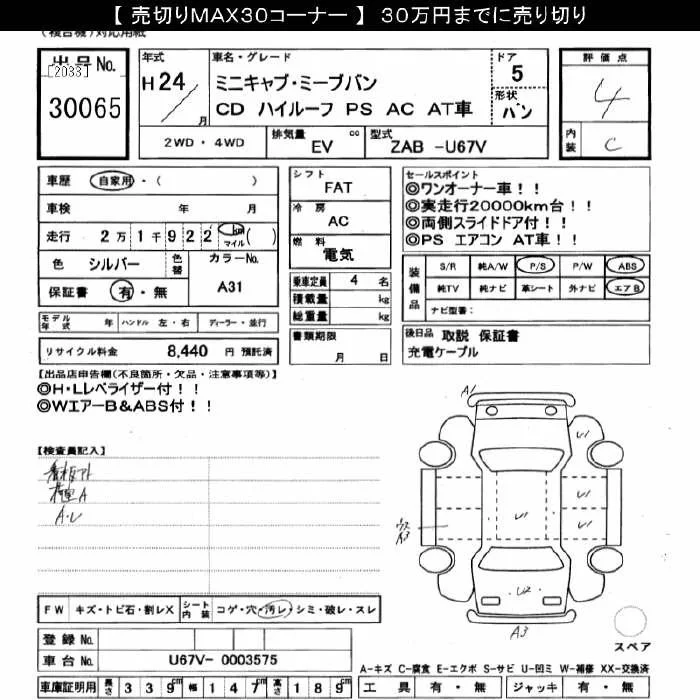 【 売切りMAX30コーナー 】 30万円までに売り切り
(複合機)対応用紙
出品No.
[2033]
30065
年式
H24/月
車名・グレード
ミニキャブ・ミーブバン
CD ハイルーフ PS AC AT車
ドア
5
形状
バン
評価点
4
内装
C
2WD・4WD
排気量
EV cc
型式
ZAB -U67V
車歴 自家用・( )
車検 年 月
走行 2万1千922 km マイル ( )
色 シルバー 色替
カラーNo.
A31
保証書 有・無
シフト
FAT
冷房
AC
燃料
電気
乗車定員 4 名
積載量 kg
総重量 kg
書類期限
月 日
セールスポイント
◎ワンオーナー車!!
◎実走行20000km台!!
◎両側スライドドア付!!
◎PS エアコン AT車!!
装備品
S/R 純A/W P/S P/W ABS
純TV 純ナビ 革シート 外ナビ エアB
ナビ型番:
モデル年式 年 ハンドル 左・右 ディーラー・並行
リサイクル料金 8,440 円 預託済
後日品 取説 保証書
充電ケーブル
【出品店申告欄(不良箇所・欠品・注意事項等)】
◎H・Lレベライザー付!!
◎WエアーB&ABS付!!
【検査員記入】
看板アト
A・レ
A1
U1
U1
U1
U1
A3
U2
A3
スペア
FW キズ・トビ石・割レX シート内装 コゲ・穴・汚レ・シミ・破レ・スレ
登録No.
車台No. U67V- 0003575
A-キズ C-腐食 E-エクボ S-サビ U-凹ミ W-補修 XX-交換済
車庫証明用 長さ 339cm 幅 147cm 高さ 189cm
工具 有・無 ジャッキ 有・無